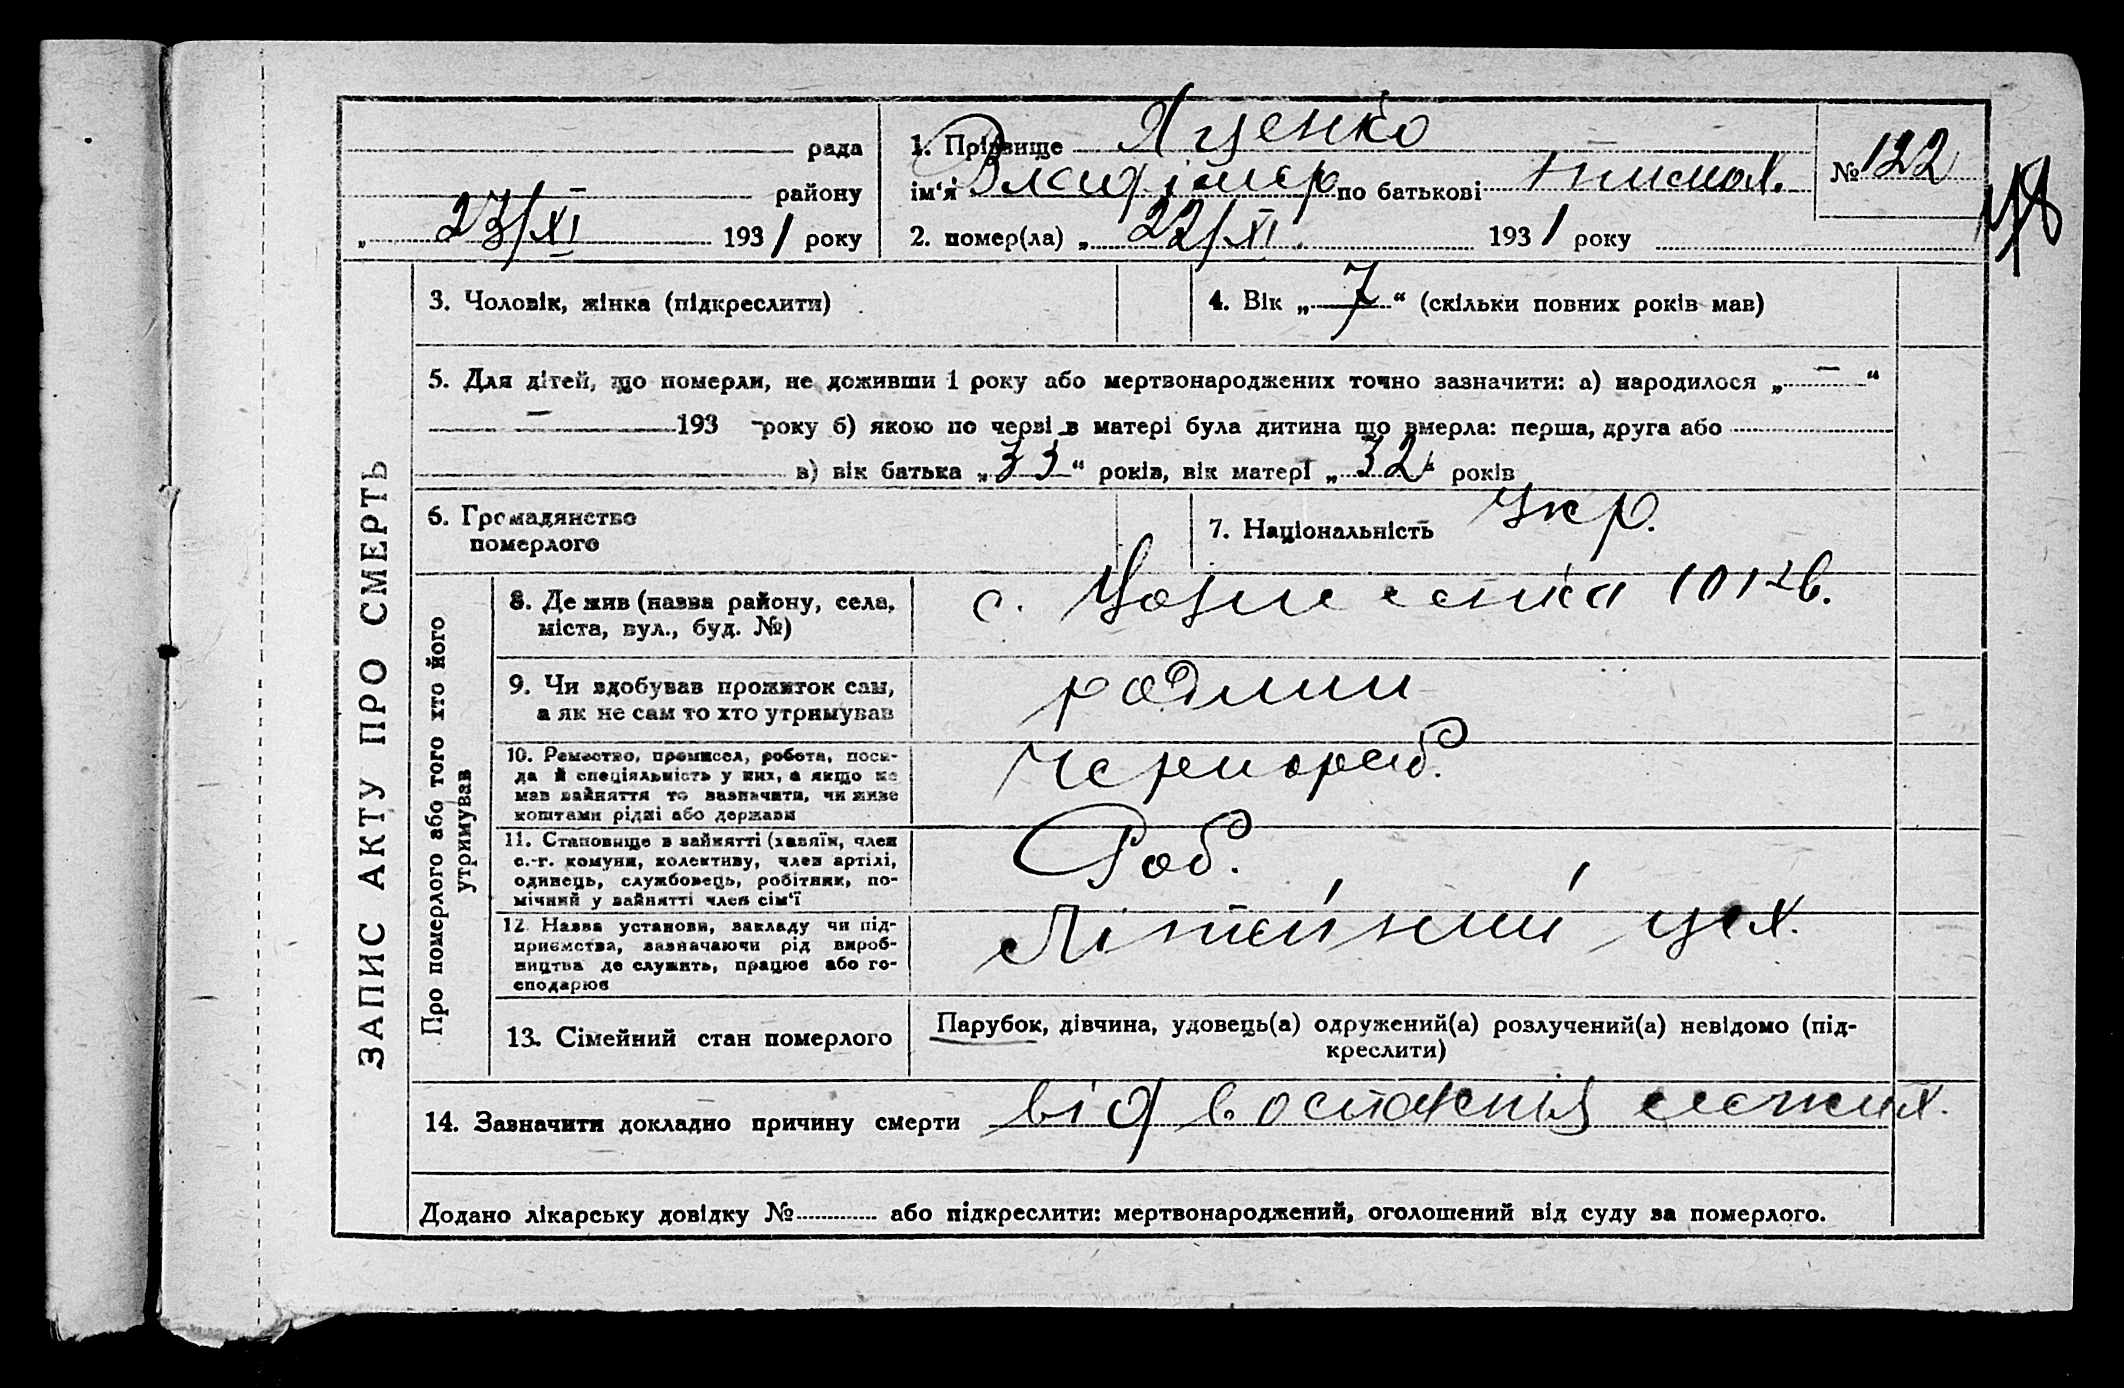 ЗАПИС АКТУ ПРО СМЕРТЬ
рада
району
„ 23/XI 1931 року
1. Прізвище Яценко
ім'я Владімер по батькові Тимох.
№ 122
2. помер(ла) „ 22/XI. 1931 року
3. Чоловік, жінка (підкреслити)
4. Вік „ 7 “ (скільки повних років мав)
5. Для дітей, що померли, не доживши 1 року або мертвонароджених точно зазначити: а) народилося „ — “
— 193 — року б) якою по черві в матері була дитина що вмерла: перша, друга або
в) вік батька „ 33 “ років, вік матері „ 32 “ років
6. Громадянство
померлого
7. Національність Укр.
Про померлого або того хто його
утримував
8. Де жив (назва району, села,
міста, вул., буд. №)
с. 1012в.
9. Чи здобував прожиток сам,
а як не сам то хто утримував
родини
10. Ремество, промисел, робота, поса-
да й спеціяльність у них, а якщо не
мав зайняття то зазначити, чи живе
коштами рідні або держави
Чернороб.
11. Становище в зайнятті (хазяїн, член
с.-г. комуни, колективу, член артілі,
одинець, службовець, робітник, по-
мічний у зайнятті член сім'ї
Роб.
12. Назва установи, закладу чи під-
приємства, зазначаючи рід вироб-
ництва де служить, працює або го-
сподарює
Літейний цех.
13. Сімейний стан померлого
Парубок, дівчина, удовець(а) одружений(а) розлучений(а) невідомо (під-
креслити)
14. Зазначити докладно причину смерти від воспаленія легких.
Додано лікарську довідку № або підкреслити: мертвонароджений, оголошений від суду за померлого.